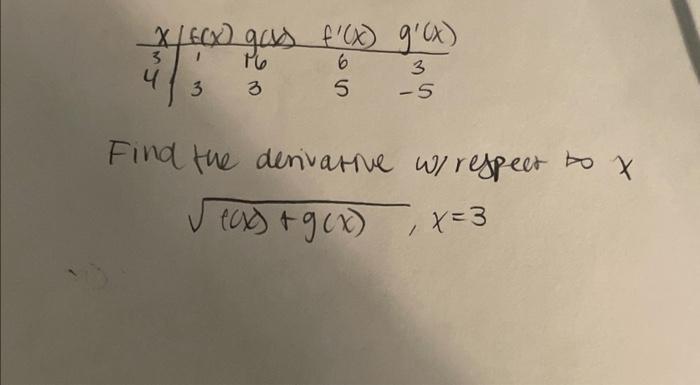 x f(x) g(x) f'(x) g'(x)
3 1 16 6 3
4 3 3 5 -5
Find the derivative w/ respect to x
√f(x) + g(x) , x=3